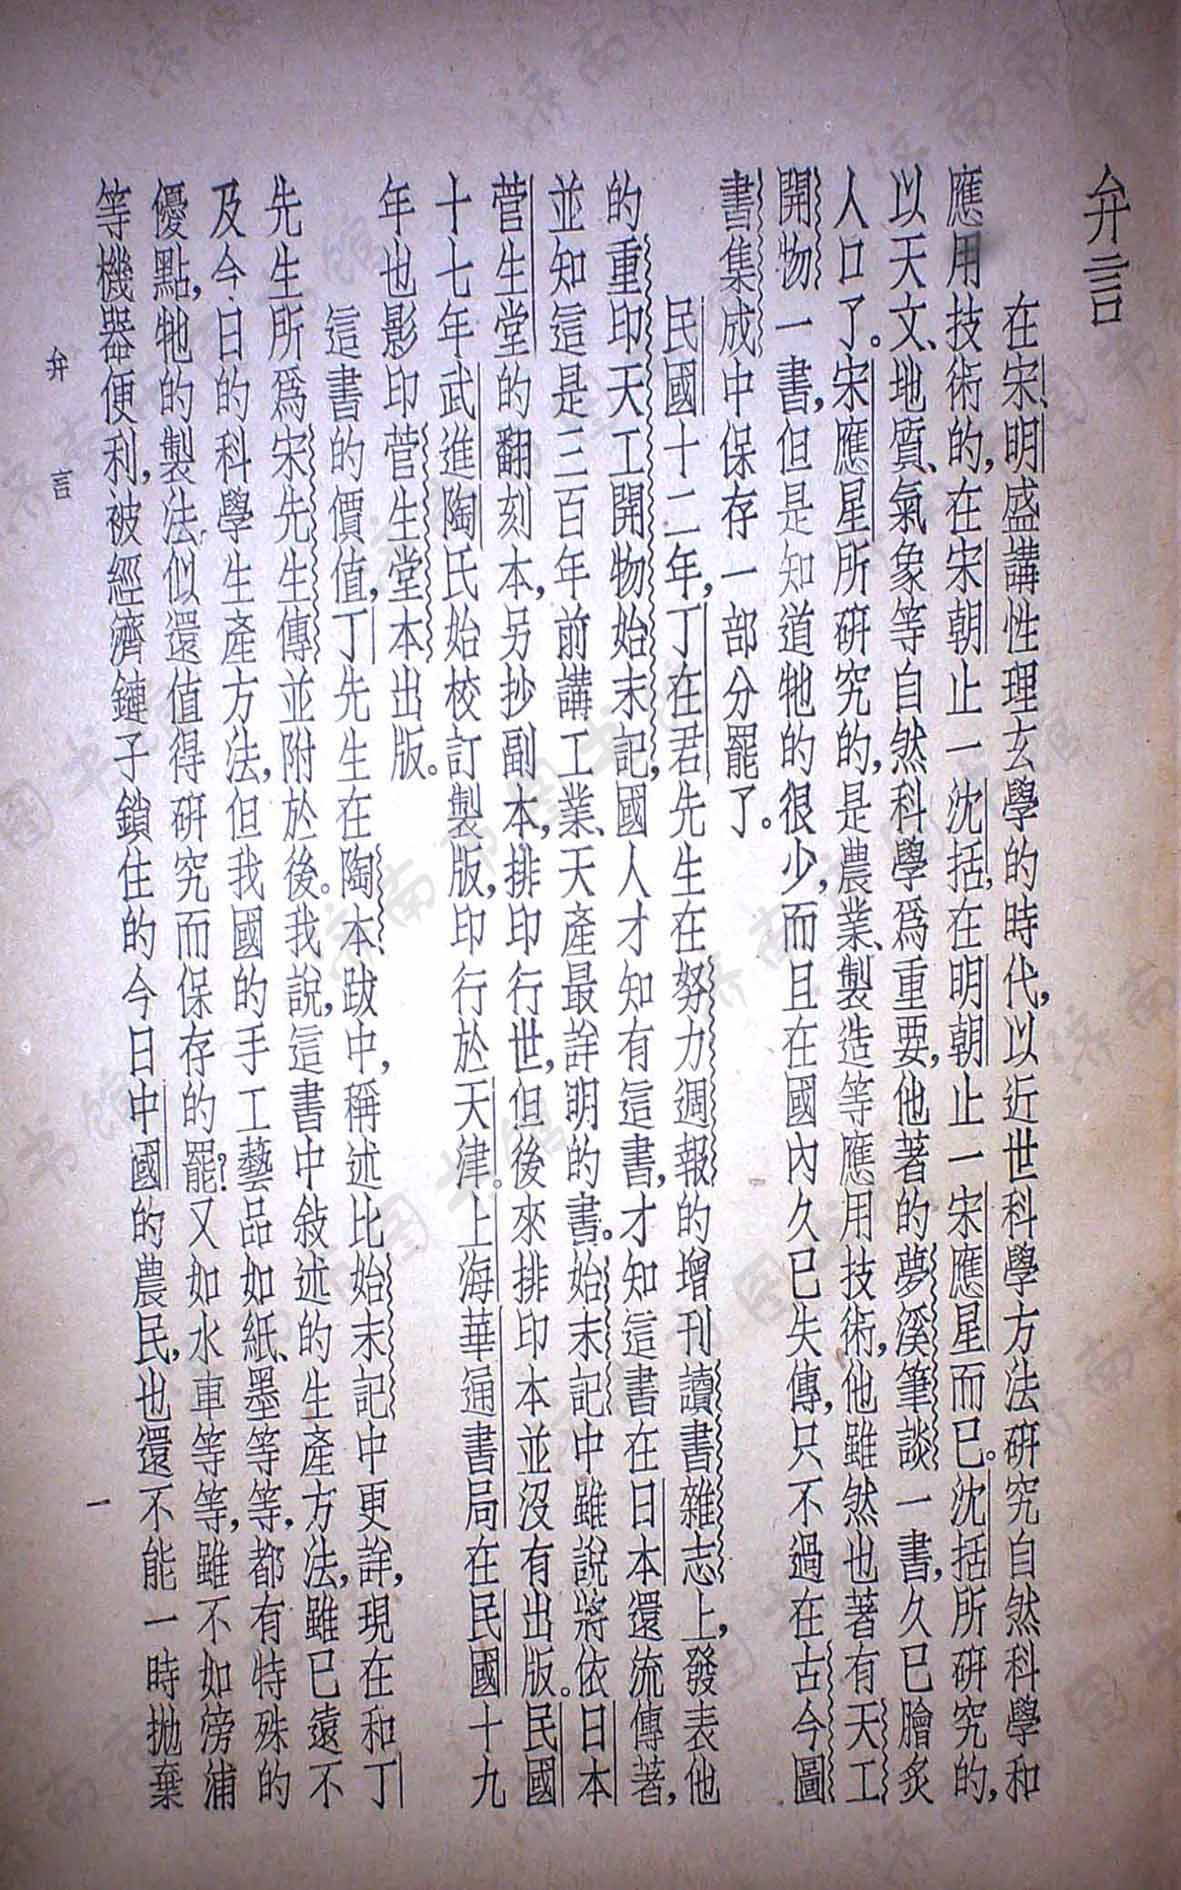 弁言
在宋、明盛講性理玄學的時代,以近世科學方法研究自然科學和
應用技術的,在宋朝止一沈括,在明朝止一宋應星而已。沈括所研究的,
以天文、地質、氣象等自然科學爲重要,他著的夢溪筆談一書,久已膾炙
人口了。宋應星所研究的,是農業、製造等應用技術,他雖然也著有天工
開物一書,但是知道牠的很少,而且在國內久已失傳,只不過在古今圖
書集成中保存一部分罷了。
民國十二年,丁在君先生在努力週報的增刊讀書雜志上,發表他
的重印天工開物始末記,國人才知有這書,才知這書在日本還流傳著,
並知這是三百年前講工業、天產最詳明的書。始末記中雖說將依日本
菅生堂的翻刻本,另抄副本,排印行世,但後來排印本並沒有出版。民國
十七年武進陶氏始校訂製版,印行於天津。上海華通書局在民國十九
年也影印菅生堂本出版。
這書的價值,丁先生在陶本跋中,稱述比始末記中更詳,現在和丁
先生所爲宋先生傳並附於後。我說,這書中敍述的生產方法,雖已遠不
及今日的科學生產方法,但我國的手工藝品如紙、墨等等,都有特殊的
優點,牠的製法似還值得研究而保存的罷?又如水車等等,雖不如滂浦
等機器便利,被經濟鏈子鎖住的今日中國的農民,也還不能一時拋棄
弁言
一
济南市图书馆